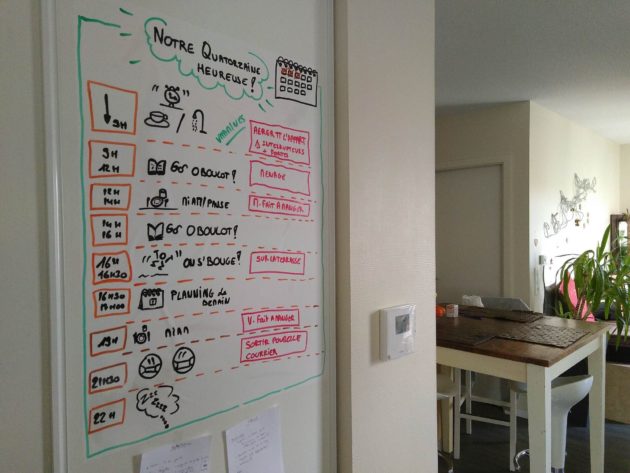 NOTRE QUATORZAINE
HEUREUSE ?
9H
VARIAVES
AERER TT L'APPART
INTERRUPTEURS
+ PORTES
9H
12H
GO! O BOULOT ?
MENAGE
12H
14H
MIAM / PAUSE
M. FAIT A MANGER
14H
16H
GO! O BOULOT ?
16H
16H30
OU S'BOUGE ?
SUR LA TERRASSE
16H30
PLANNING de
DEMAIN
19H
MIAM
V. FAIT A MANGER
SORTIR POUBELLE
COURRIER
21H30
22H
ZZZ
ZZZZ